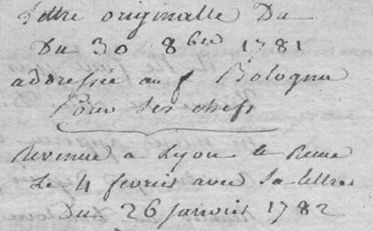 Lettre originalle Du
Du 30 8bre 1781
addressée au f Bologne
Pour ses chefs
Revenue a Lyon le
Le 4 fevrier avec sa lettre
Du 26 janvier 1782